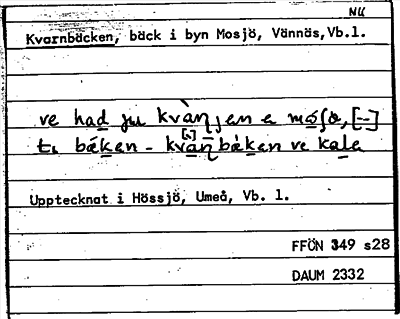 NU
Kvarnbäcken, bäck i byn Mosjö, Vännäs, Vb.l.
ve had ju kvàɳjen e mósjø, [--]
bä́ken - kvaɳbä̀ken ve kala
Upptecknat i Hössjö, Umeå, Vb. l.
FFÖN 349 s28
DAUM 2332